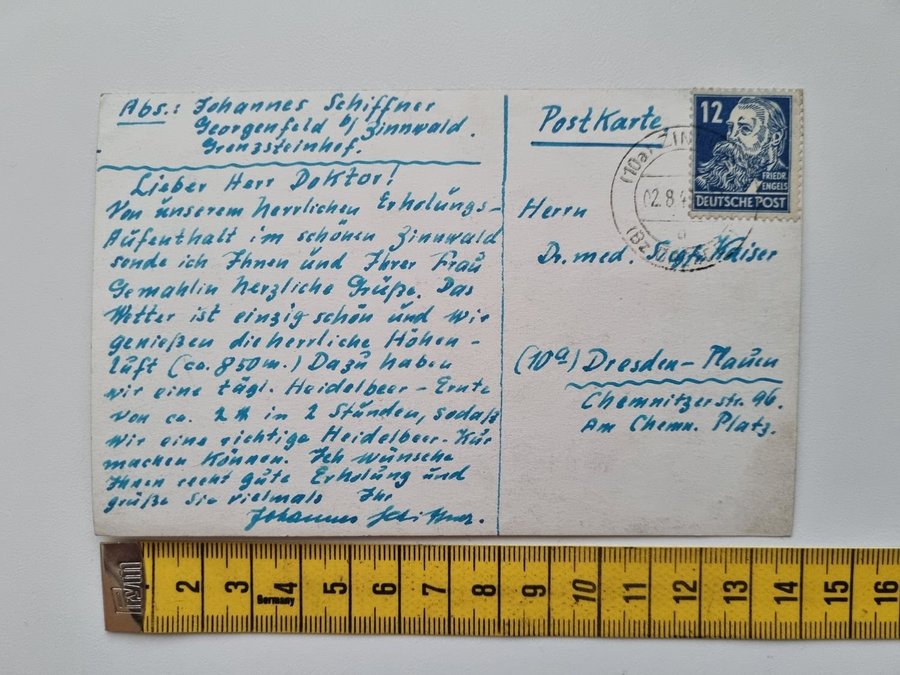 Abs.: Johannes Schiffner
Georgenfeld b/ Zinnwald.
Grenzsteinhof.
Lieber Herr Doktor!
Von unserem herrlichen Erholungs-
Aufenthalt im schönen Zinnwald
sende ich Ihnen und Ihrer Frau
Gemahlin herzliche Grüße. Das
Wetter ist einzig schön und wir
genießen die herrliche Höhen-
luft (ca. 850 m.) Dazu haben
wir eine tägl. Heidelbeer-Ernte
von ca. 2 in 2 Stunden, sodaß
wir eine richtige Heidelbeer-Kur
machen können. Ich wünsche
Ihnen recht gute Erholung und
grüße Sie vielmals Ihr
Johannes Schiffner.
Postkarte
Herrn
Dr. med. Kaiser
(10a) Dresden-Plauen
Chemnitzerstr. 96.
Am Chemn. Platz.
12
FRIEDR
ENGELS
DEUTSCHE POST
(10a) ZIN
02.8.4
(Bz.
2 3 4 5 6 7 8 9 10 11 12 13 14 15 16
Germany